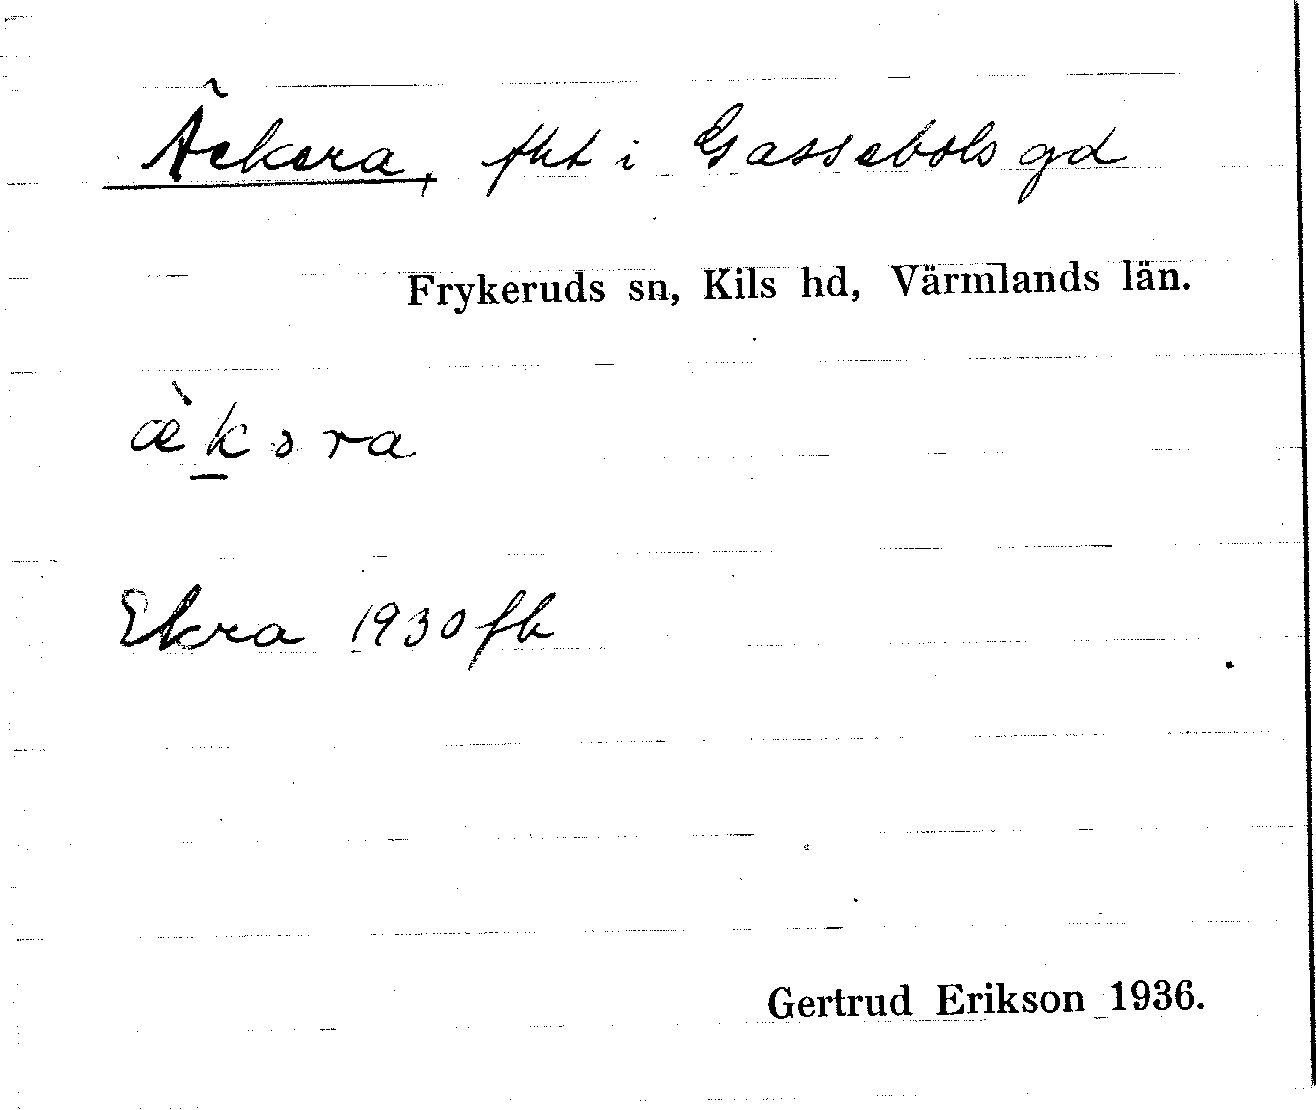 Äckera, fht i Gassebols gd
Frykeruds sn, Kils hd, Värmlands län.
æ̀k̲əra
Ekra 1930 fb
Gertrud Erikson 1936.